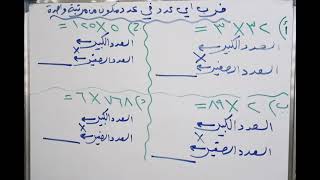 ضرب اي عدد في عدد مكون من مرتبة واحدة
أ) ٣٢ × ٣ =
العدد الكبير
×
العدد الصغير
2) ٥ × ١٢٥ =
العدد الكبير
×
العدد الصغير
ب) ٢ × ٨٩ =
العدد الكبير
×
العدد الصغير
د) ٧٦٨ × ٦ =
العدد الكبير
×
العدد الصغير